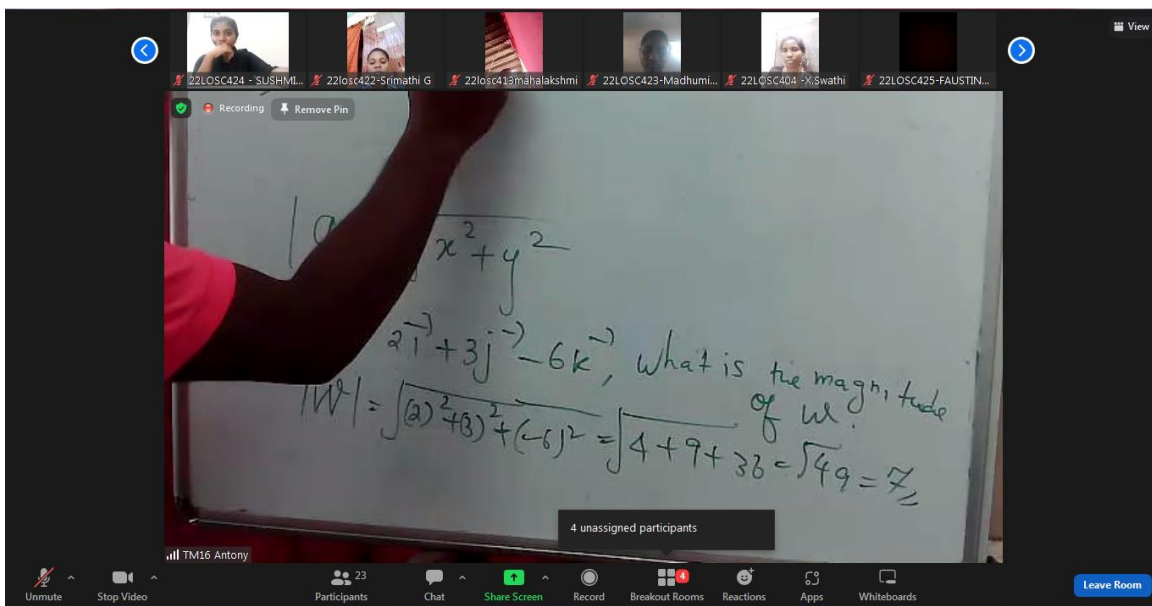 View
22LOSC424 - SUSHMI... 22losc422-Srimathi G 22losc413mahalakshmi 22LOSC423-Madhumi... 22LOSC404 -X.Swathi 22LOSC425-FAUSTIN...
Recording Remove Pin
x² + y²
2i→ + 3j→ - 6k→, what is the magnitude
of w.
|W| = √(2)² + (3)² + (-6)² = √4 + 9 + 36 = √49 = 7
4 unassigned participants
TM16 Antony
23 4
Unmute Stop Video Participants Chat Share Screen Record Breakout Rooms Reactions Apps Whiteboards Leave Room